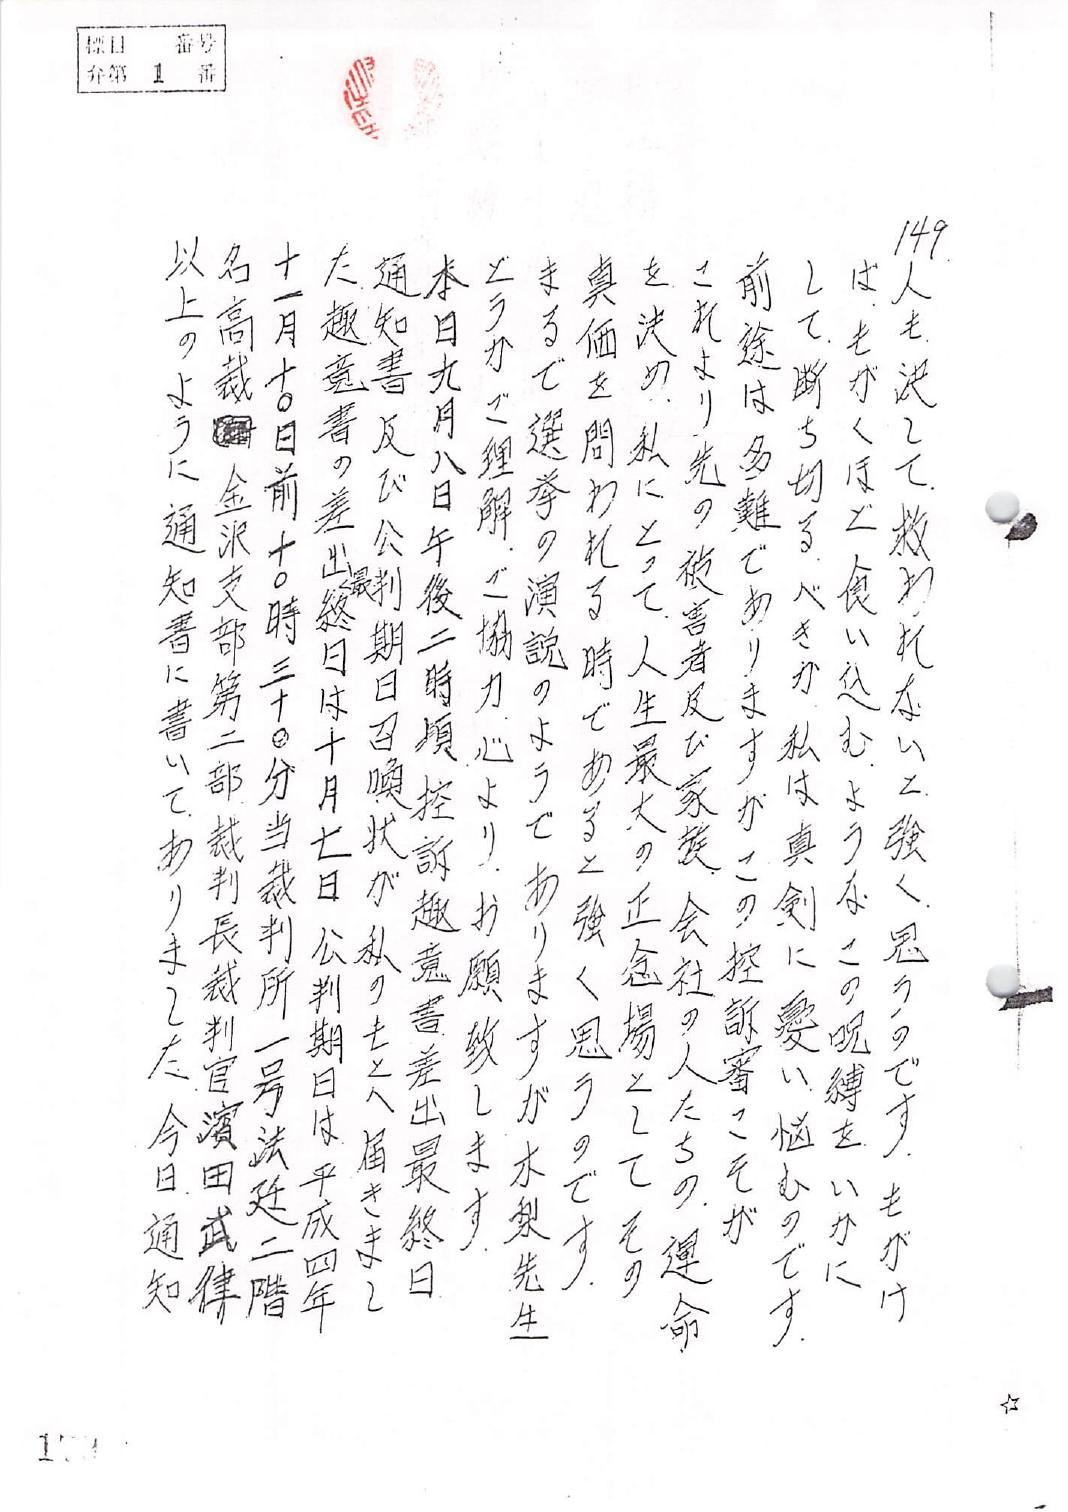 標目 番号
弁第 1 番
149
人も決して、救われないと、強く、思うのです。もがけ
ば、もがくほど食い込む、ような、この呪縛を、いかに
して、断ち切る、べきか、私は真剣に憂い、悩むのです。
前途は多難でありますが、この控訴審こそが
これより先の被害者及び家族、会社の人たちの、運命
を決め、私にとって、人生最大の正念場としてその
真価を問われる時であると強く思うのです。
まるで選挙の演説のようでありますが木梨先生
どうかご理解、ご協力、心より、お願い致します。
本日九月八日午後二時頃控訴趣意書差出最終日
通知書及び公判期日召喚状が私のもとへ届きまし
た趣意書の差出最終日は十月七日公判期日は平成四年
十一月十〇日前十〇時三十〇分当裁判所一号法廷二階
名高裁金沢支部第二部裁判長裁判官濱田武律
以上のように通知書に書いて、ありました、今日、通知
☆